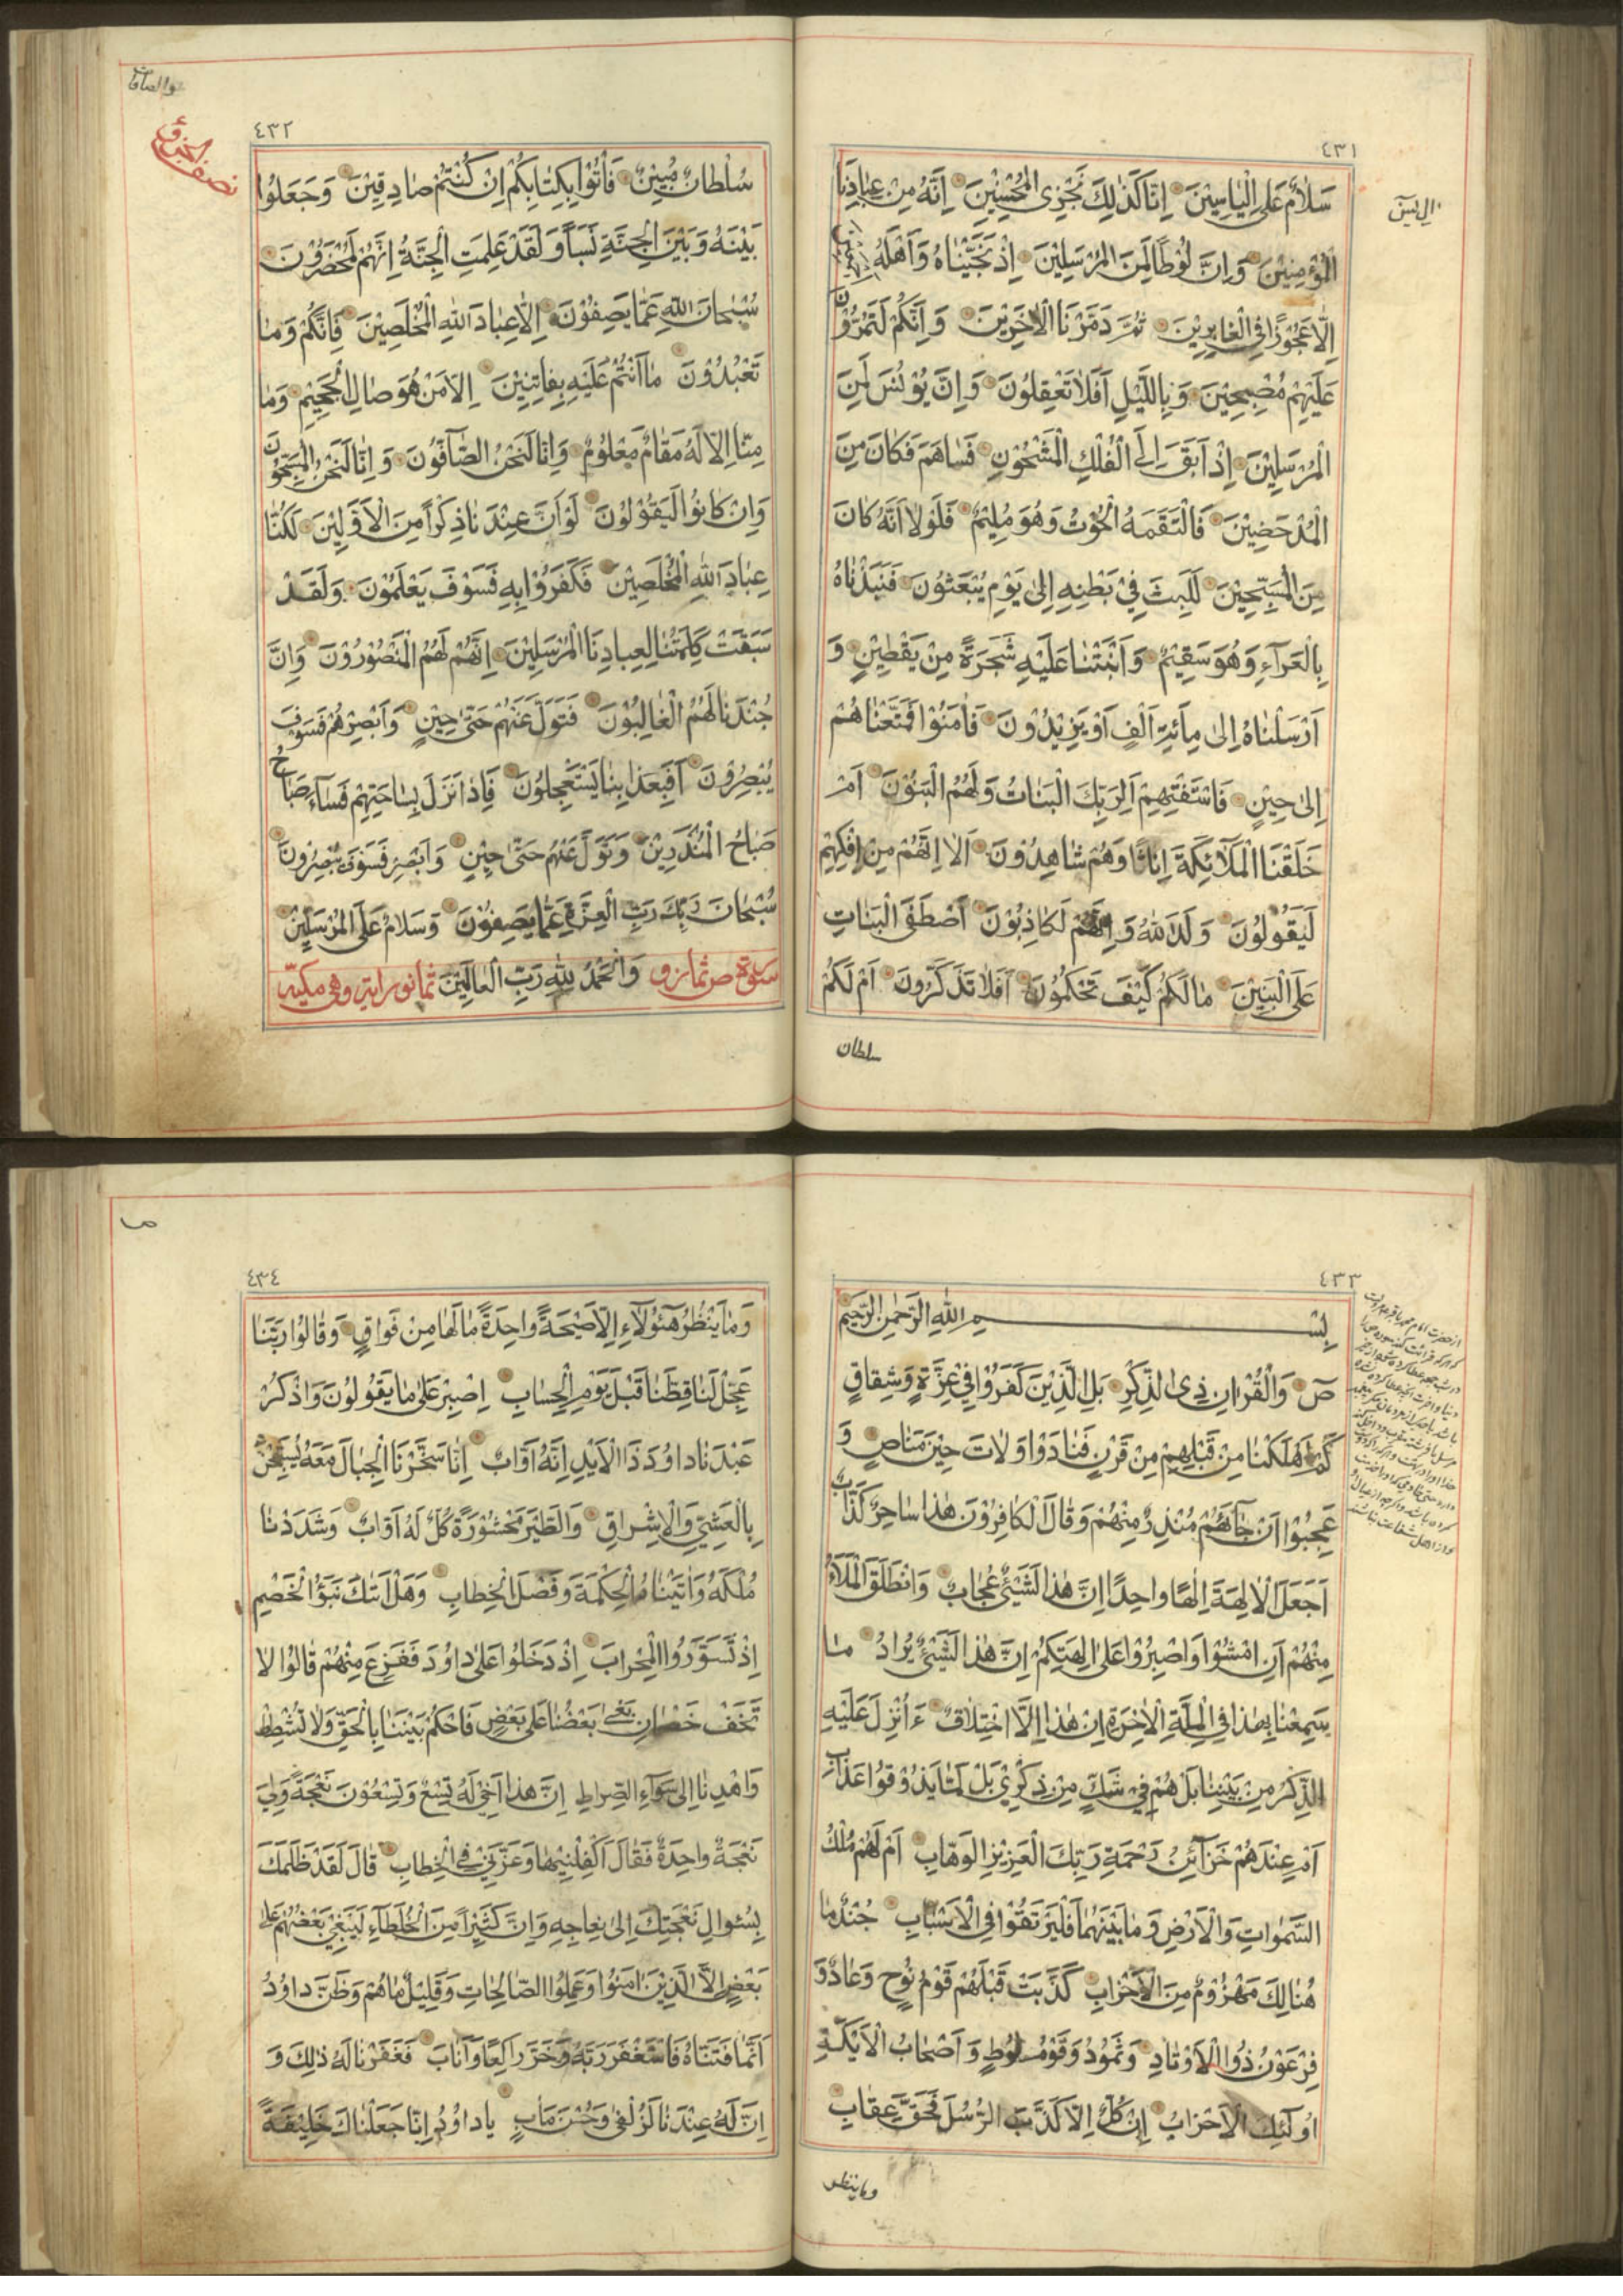 ٤٣١
سَلَامٌ عَلَى اِلْيَاسِيْنَ اِنَّا كَذٰلِكَ نَجْزِى الْمُحْسِنِيْنَ اِنَّهُ مِنْ عِبَادِنَا
ال يس
الْمُؤْمِنِيْنَ وَاِنَّ لُوْطًا لَمِنَ الْمُرْسَلِيْنَ اِذْ نَجَّيْنَاهُ وَاَهْلَهُ
اِلَّا عَجُوْزًا فِى الْغَابِرِيْنَ ثُمَّ دَمَّرْنَا الْاٰخَرِيْنَ وَاِنَّكُمْ لَتَمُرُّوْنَ
عَلَيْهِمْ مُصْبِحِيْنَ وَبِاللَّيْلِ اَفَلَا تَعْقِلُوْنَ وَاِنَّ يُوْنُسَ لَمِنَ
الْمُرْسَلِيْنَ اِذْ اَبَقَ اِلَى الْفُلْكِ الْمَشْحُوْنِ فَسَاهَمَ فَكَانَ مِنَ
الْمُدْحَضِيْنَ فَالْتَقَمَهُ الْحُوْتُ وَهُوَ مُلِيْمٌ فَلَوْلَا اَنَّهُ كَانَ
مِنَ الْمُسَبِّحِيْنَ لَلَبِثَ فِيْ بَطْنِهِ اِلٰى يَوْمِ يُبْعَثُوْنَ فَنَبَذْنَاهُ
بِالْعَرَآءِ وَهُوَ سَقِيْمٌ وَاَنْبَتْنَا عَلَيْهِ شَجَرَةً مِنْ يَقْطِيْنٍ وَ
اَرْسَلْنَاهُ اِلٰى مِائَةِ اَلْفٍ اَوْ يَزِيْدُوْنَ فَاٰمَنُوْا فَمَتَّعْنَاهُمْ
اِلٰى حِيْنٍ فَاسْتَفْتِهِمْ اَلِرَبِّكَ الْبَنَاتُ وَلَهُمُ الْبَنُوْنَ اَمْ
خَلَقْنَا الْمَلَآئِكَةَ اِنَاثًا وَهُمْ شَاهِدُوْنَ اَلَا اِنَّهُمْ مِنْ اِفْكِهِمْ
لَيَقُوْلُوْنَ وَلَدَ اللّٰهُ وَاِنَّهُمْ لَكَاذِبُوْنَ اَصْطَفَى الْبَنَاتِ
عَلَى الْبَنِيْنَ مَا لَكُمْ كَيْفَ تَحْكُمُوْنَ اَفَلَا تَذَكَّرُوْنَ اَمْ لَكُمْ
سلطان
والصافات
نصف الجزؤ
٤٣٢
سُلْطَانٌ مُبِيْنٌ فَأْتُوْا بِكِتَابِكُمْ اِنْ كُنْتُمْ صَادِقِيْنَ وَجَعَلُوْا
بَيْنَهُ وَبَيْنَ الْجِنَّةِ نَسَبًا وَلَقَدْ عَلِمَتِ الْجِنَّةُ اِنَّهُمْ لَمُحْضَرُوْنَ
سُبْحَانَ اللّٰهِ عَمَّا يَصِفُوْنَ اِلَّا عِبَادَ اللّٰهِ الْمُخْلَصِيْنَ فَاِنَّكُمْ وَمَا
تَعْبُدُوْنَ مَا اَنْتُمْ عَلَيْهِ بِفَاتِنِيْنَ اِلَّا مَنْ هُوَ صَالِ الْجَحِيْمِ وَمَا
مِنَّا اِلَّا لَهُ مَقَامٌ مَعْلُوْمٌ وَاِنَّا لَنَحْنُ الصَّآفُّوْنَ وَاِنَّا لَنَحْنُ الْمُسَبِّحُوْنَ
وَاِنْ كَانُوْا لَيَقُوْلُوْنَ لَوْ اَنَّ عِنْدَنَا ذِكْرًا مِنَ الْاَوَّلِيْنَ لَكُنَّا
عِبَادَ اللّٰهِ الْمُخْلَصِيْنَ فَكَفَرُوْا بِهِ فَسَوْفَ يَعْلَمُوْنَ وَلَقَدْ
سَبَقَتْ كَلِمَتُنَا لِعِبَادِنَا الْمُرْسَلِيْنَ اِنَّهُمْ لَهُمُ الْمَنْصُوْرُوْنَ وَاِنَّ
جُنْدَنَا لَهُمُ الْغَالِبُوْنَ فَتَوَلَّ عَنْهُمْ حَتّٰى حِيْنٍ وَاَبْصِرْهُمْ فَسَوْفَ
يُبْصِرُوْنَ اَفَبِعَذَابِنَا يَسْتَعْجِلُوْنَ فَاِذَا نَزَلَ بِسَاحَتِهِمْ فَسَآءَ صَبَاحُ
صَبَاحُ الْمُنْذَرِيْنَ وَتَوَلَّ عَنْهُمْ حَتّٰى حِيْنٍ وَاَبْصِرْ فَسَوْفَ يُبْصِرُوْنَ
سُبْحَانَ رَبِّكَ رَبِّ الْعِزَّةِ عَمَّا يَصِفُوْنَ وَسَلَامٌ عَلَى الْمُرْسَلِيْنَ
سورة ص ثمان و وَالْحَمْدُ لِلّٰهِ رَبِّ الْعَالَمِيْنَ ثمانون اية وهى مكية
٤٣٣
بِسْمِ اللّٰهِ الرَّحْمٰنِ الرَّحِيْمِ
صٓ وَالْقُرْاٰنِ ذِى الذِّكْرِ بَلِ الَّذِيْنَ كَفَرُوْا فِيْ عِزَّةٍ وَشِقَاقٍ
كَمْ اَهْلَكْنَا مِنْ قَبْلِهِمْ مِنْ قَرْنٍ فَنَادَوْا وَلَاتَ حِيْنَ مَنَاصٍ وَ
عَجِبُوْا اَنْ جَآءَهُمْ مُنْذِرٌ مِنْهُمْ وَقَالَ الْكَافِرُوْنَ هٰذَا سَاحِرٌ كَذَّابٌ
اَجَعَلَ الْاٰلِهَةَ اِلٰهًا وَاحِدًا اِنَّ هٰذَا لَشَيْئٌ عُجَابٌ وَانْطَلَقَ الْمَلَأُ
مِنْهُمْ اَنِ امْشُوْا وَاصْبِرُوْا عَلٰى اٰلِهَتِكُمْ اِنَّ هٰذَا لَشَيْئٌ يُرَادُ مَا
سَمِعْنَا بِهٰذَا فِى الْمِلَّةِ الْاٰخِرَةِ اِنْ هٰذَا اِلَّا اخْتِلَاقٌ ءَاُنْزِلَ عَلَيْهِ
الذِّكْرُ مِنْ بَيْنِنَا بَلْ هُمْ فِيْ شَكٍّ مِنْ ذِكْرِيْ بَلْ لَمَّا يَذُوْقُوْا عَذَابِ
اَمْ عِنْدَهُمْ خَزَآئِنُ رَحْمَةِ رَبِّكَ الْعَزِيْزِ الْوَهَّابِ اَمْ لَهُمْ مُلْكُ
السَّمٰوَاتِ وَالْاَرْضِ وَمَا بَيْنَهُمَا فَلْيَرْتَقُوْا فِى الْاَسْبَابِ جُنْدٌ مَا
هُنَالِكَ مَهْزُوْمٌ مِنَ الْاَحْزَابِ كَذَّبَتْ قَبْلَهُمْ قَوْمُ نُوْحٍ وَعَادٌ وَ
فِرْعَوْنُ ذُو الْاَوْتَادِ وَثَمُوْدُ وَقَوْمُ لُوْطٍ وَاَصْحَابُ الْاَيْكَةِ
اُولٰئِكَ الْاَحْزَابُ اِنْ كُلٌّ اِلَّا كَذَّبَ الرُّسُلَ فَحَقَّ عِقَابِ
وما ينظر
ص
٤٣٤
وَمَا يَنْظُرُ هٰٓؤُلَآءِ اِلَّا صَيْحَةً وَاحِدَةً مَا لَهَا مِنْ فَوَاقٍ وَقَالُوْا رَبَّنَا
عَجِّلْ لَنَا قِطَّنَا قَبْلَ يَوْمِ الْحِسَابِ اِصْبِرْ عَلٰى مَا يَقُوْلُوْنَ وَاذْكُرْ
عَبْدَنَا دَاوُدَ ذَا الْاَيْدِ اِنَّهُ اَوَّابٌ اِنَّا سَخَّرْنَا الْجِبَالَ مَعَهُ يُسَبِّحْنَ
بِالْعَشِيِّ وَالْاِشْرَاقِ وَالطَّيْرَ مَحْشُوْرَةً كُلٌّ لَهُ اَوَّابٌ وَشَدَدْنَا
مُلْكَهُ وَاٰتَيْنَاهُ الْحِكْمَةَ وَفَصْلَ الْخِطَابِ وَهَلْ اَتٰىكَ نَبَؤُا الْخَصْمِ
اِذْ تَسَوَّرُوا الْمِحْرَابَ اِذْ دَخَلُوْا عَلٰى دَاوُدَ فَفَزِعَ مِنْهُمْ قَالُوْا لَا
تَخَفْ خَصْمَانِ بَغٰى بَعْضُنَا عَلٰى بَعْضٍ فَاحْكُمْ بَيْنَنَا بِالْحَقِّ وَلَا تُشْطِطْ
وَاهْدِنَا اِلٰى سَوَآءِ الصِّرَاطِ اِنَّ هٰذَا اَخِيْ لَهُ تِسْعٌ وَتِسْعُوْنَ نَعْجَةً وَلِيَ
نَعْجَةٌ وَاحِدَةٌ فَقَالَ اَكْفِلْنِيْهَا وَعَزَّنِيْ فِى الْخِطَابِ قَالَ لَقَدْ ظَلَمَكَ
بِسُئوالِ نَعْجَتِكَ اِلٰى نِعَاجِهِ وَاِنَّ كَثِيْرًا مِنَ الْخُلَطَآءِ لَيَبْغِيْ بَعْضُهُمْ عَلٰى
بَعْضٍ اِلَّا الَّذِيْنَ اٰمَنُوْا وَعَمِلُوا الصَّالِحَاتِ وَقَلِيْلٌ مَا هُمْ وَظَنَّ دَاوُدُ
اَنَّمَا فَتَنَّاهُ فَاسْتَغْفَرَ رَبَّهُ وَخَرَّ رَاكِعًا وَاَنَابَ فَغَفَرْنَا لَهُ ذٰلِكَ وَ
اِنَّ لَهُ عِنْدَنَا لَزُلْفٰى وَحُسْنَ مَاٰبٍ يَا دَاوُدُ اِنَّا جَعَلْنَاكَ خَلِيْفَةً